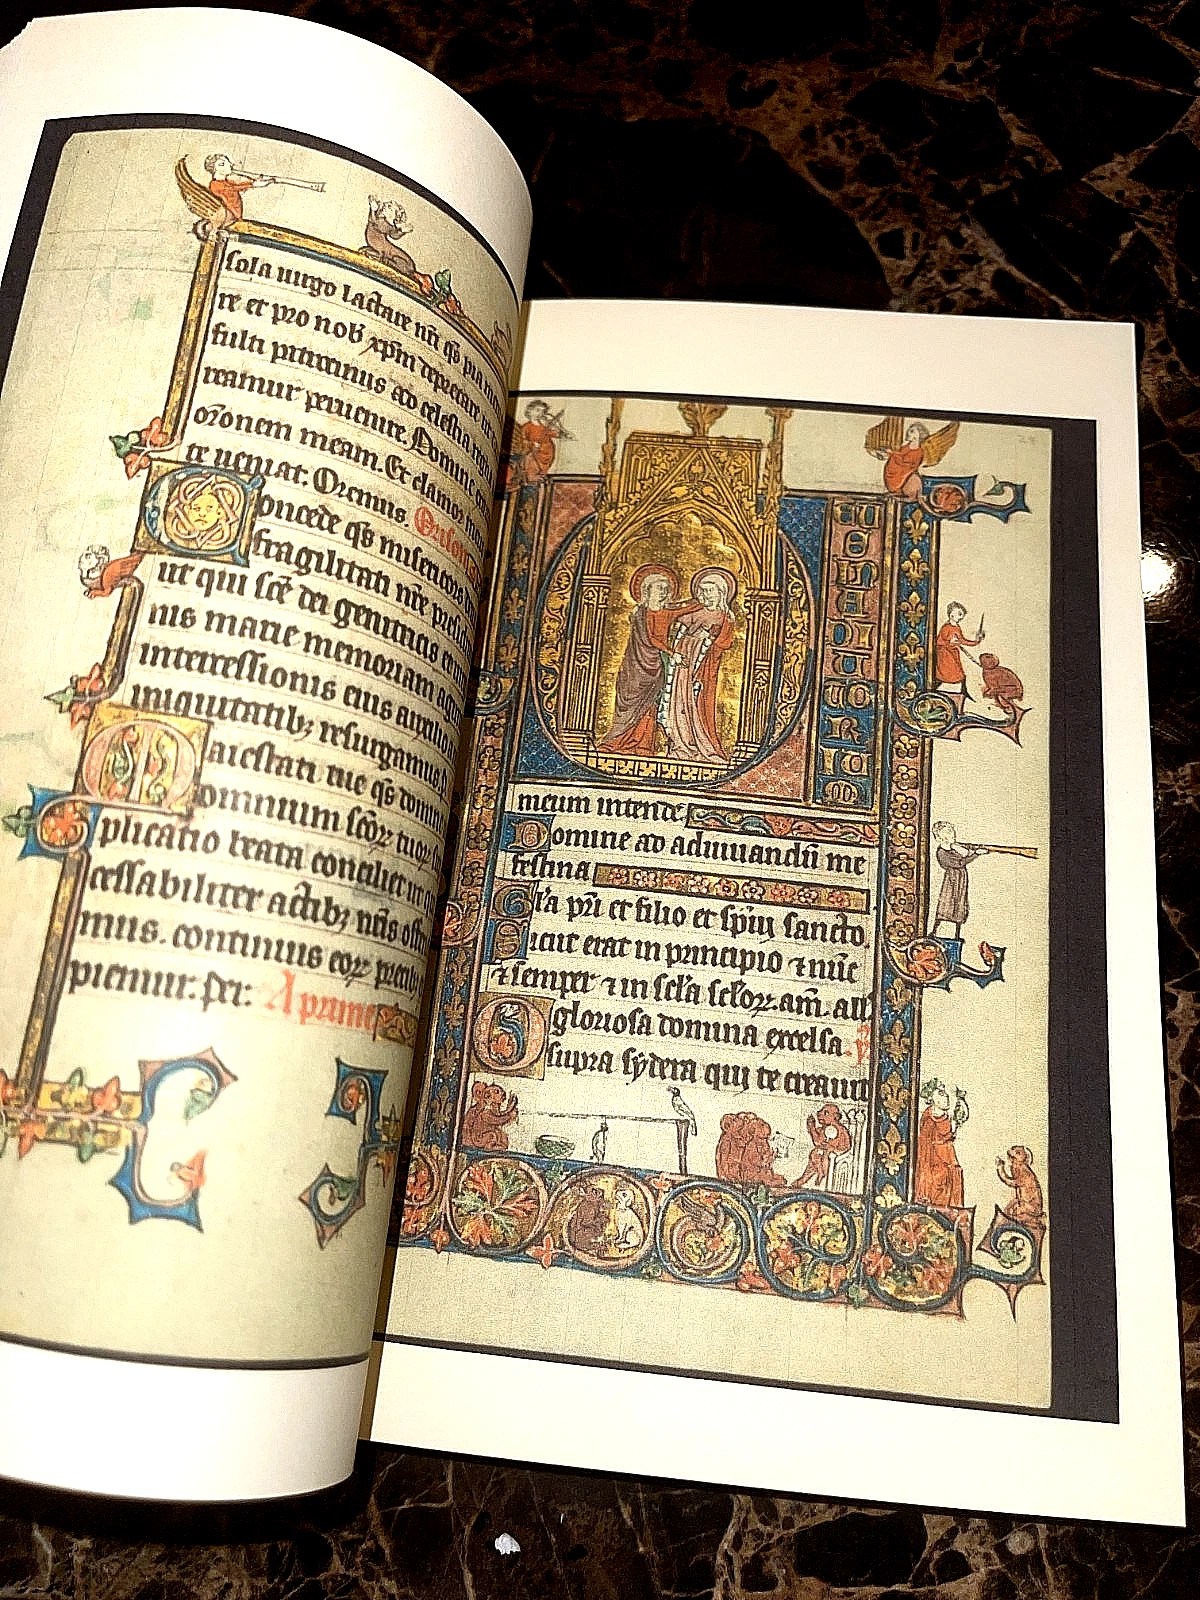 sola uirgo lactare nr̄i q̄s pia me
re et pro nob̄ xp̄m deprecare ut
fulti patrocinus ad celestia regna
reamur peruenire. Domine
or̄onem meam. Et clamor meus
te ueniat. Oremus.
oncede q̄s misericors
fragilitati nr̄e presidiu
ut qui sc̄e dei genitricis
nis marie memoriam
intercessionis eius auxilio
iniquitatibꝫ resurgamus. p
aiestati tue q̄s domine
omnium sc̄oꝝ tuoꝝ
plicatio beata conciliet ut qui
cessabiliter actibꝫ nr̄is
mus. continuis eoꝝ precibꝫ
piemur. per: A prime
DEUS IN ADIUTORIUM
meum intende.
Domine ad adiuuandū me
festina
Gl̄a pr̄i et filio et sp̄ui sancto.
Sicut erat in principio ⁊ nūc
⁊ semper ⁊ in sc̄la sc̄loꝝ. am̄. all̄
O gloriosa domina excelsa
supra sydera qui te creauit